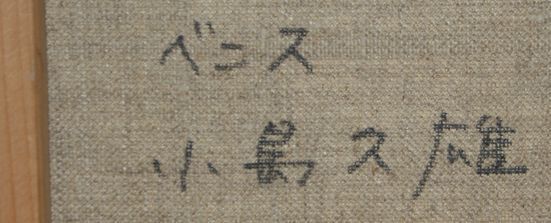 ベニス
小島久雄